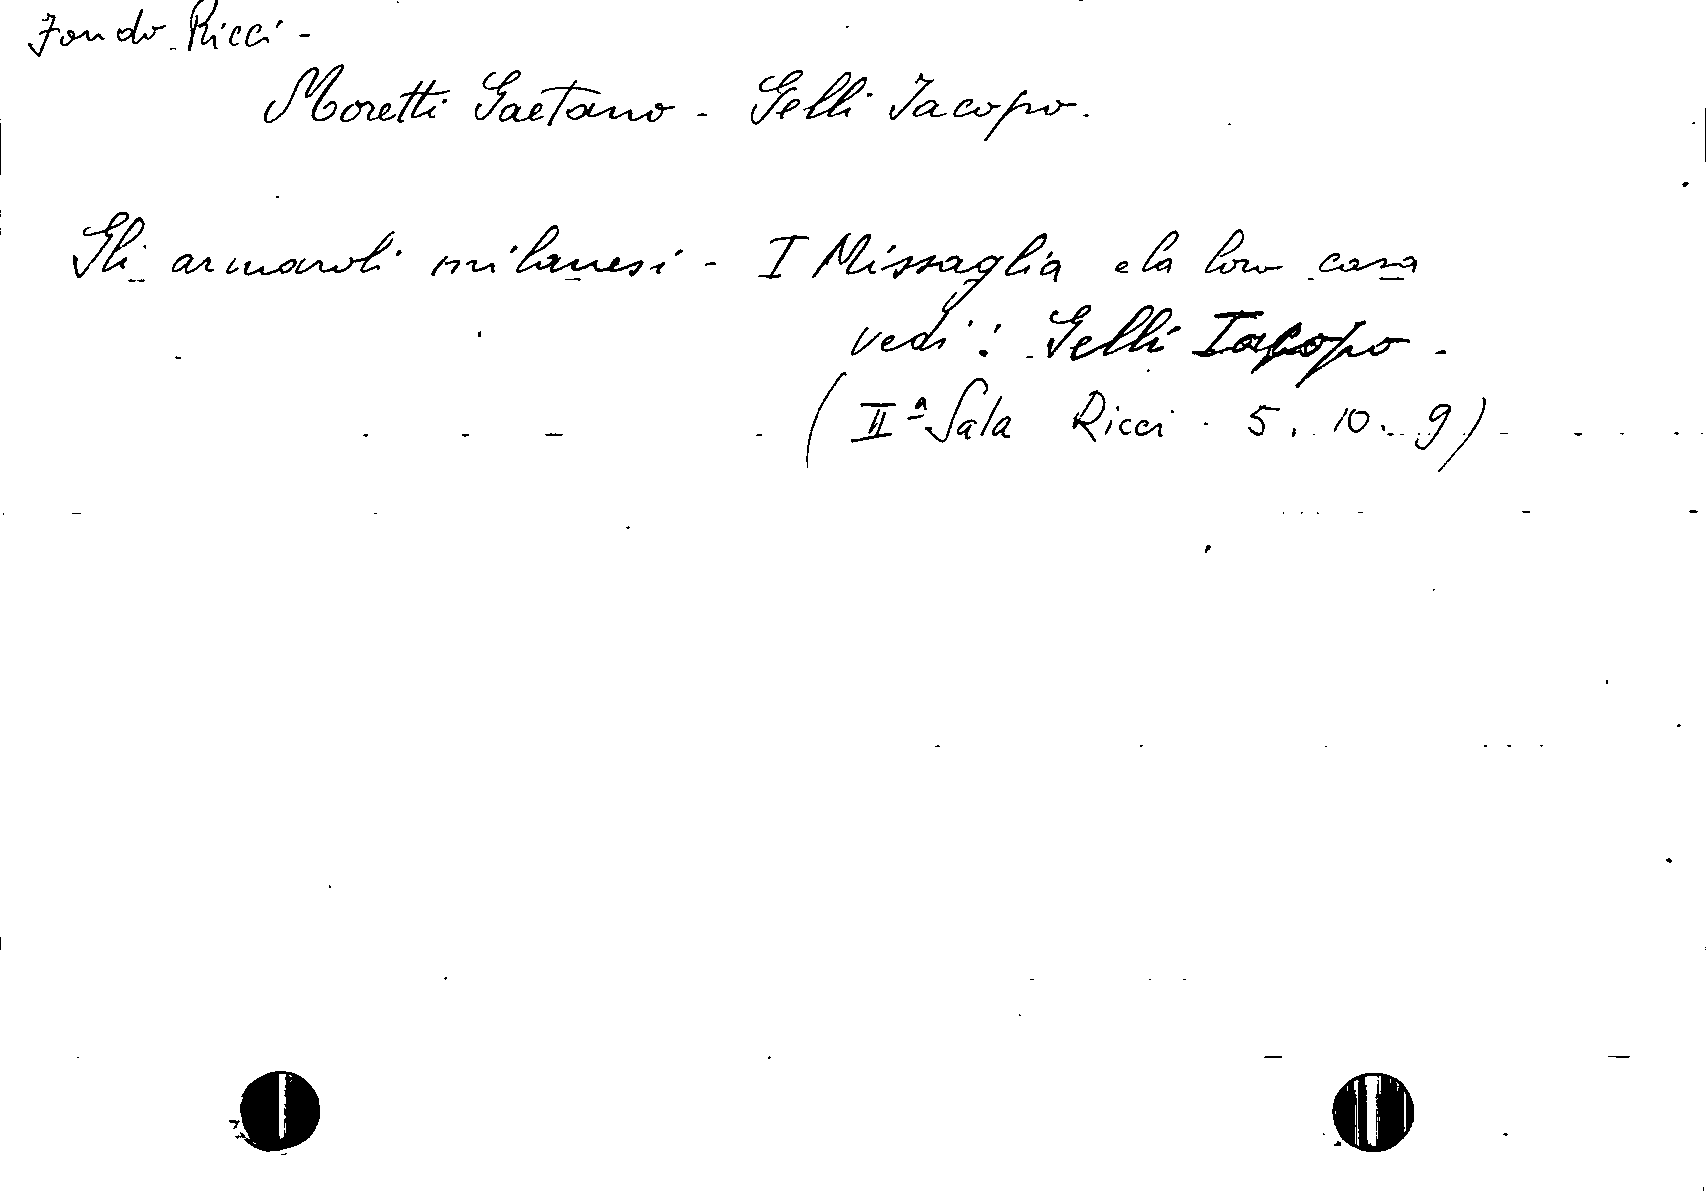 Fondo Ricci -
Moretti Gaetano - Gelli Jacopo.
Gli armaroli milanesi - I Missaglia e la loro casa
vedi: Gelli Iacopo.
(IIª Sala Ricci. 5. 10. 9)